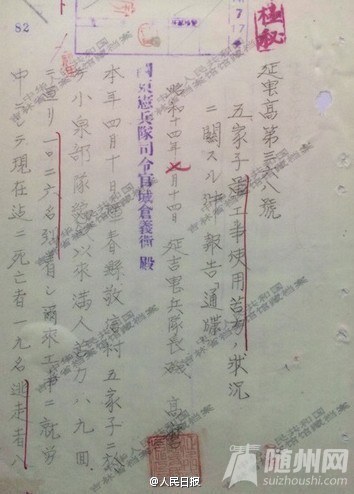 極秘
7 17
82
延憲高第三六八號
五家子軍工事使用苦力ノ狀況
ニ關スル件「報告「通牒」
昭和十四年七月十四日 延吉憲兵隊長
關東憲兵隊司令官城倉義衛殿
本年四月十日琿春縣敬信村五家子ニ於
小泉部隊 以來満人苦力八九回
ニ連リ一〇二六名到着シ爾來工事ニ就労
中ニシテ現在迄ニ死亡者一九名逃走者八
@人民日报
随州网
suizhoushi.com